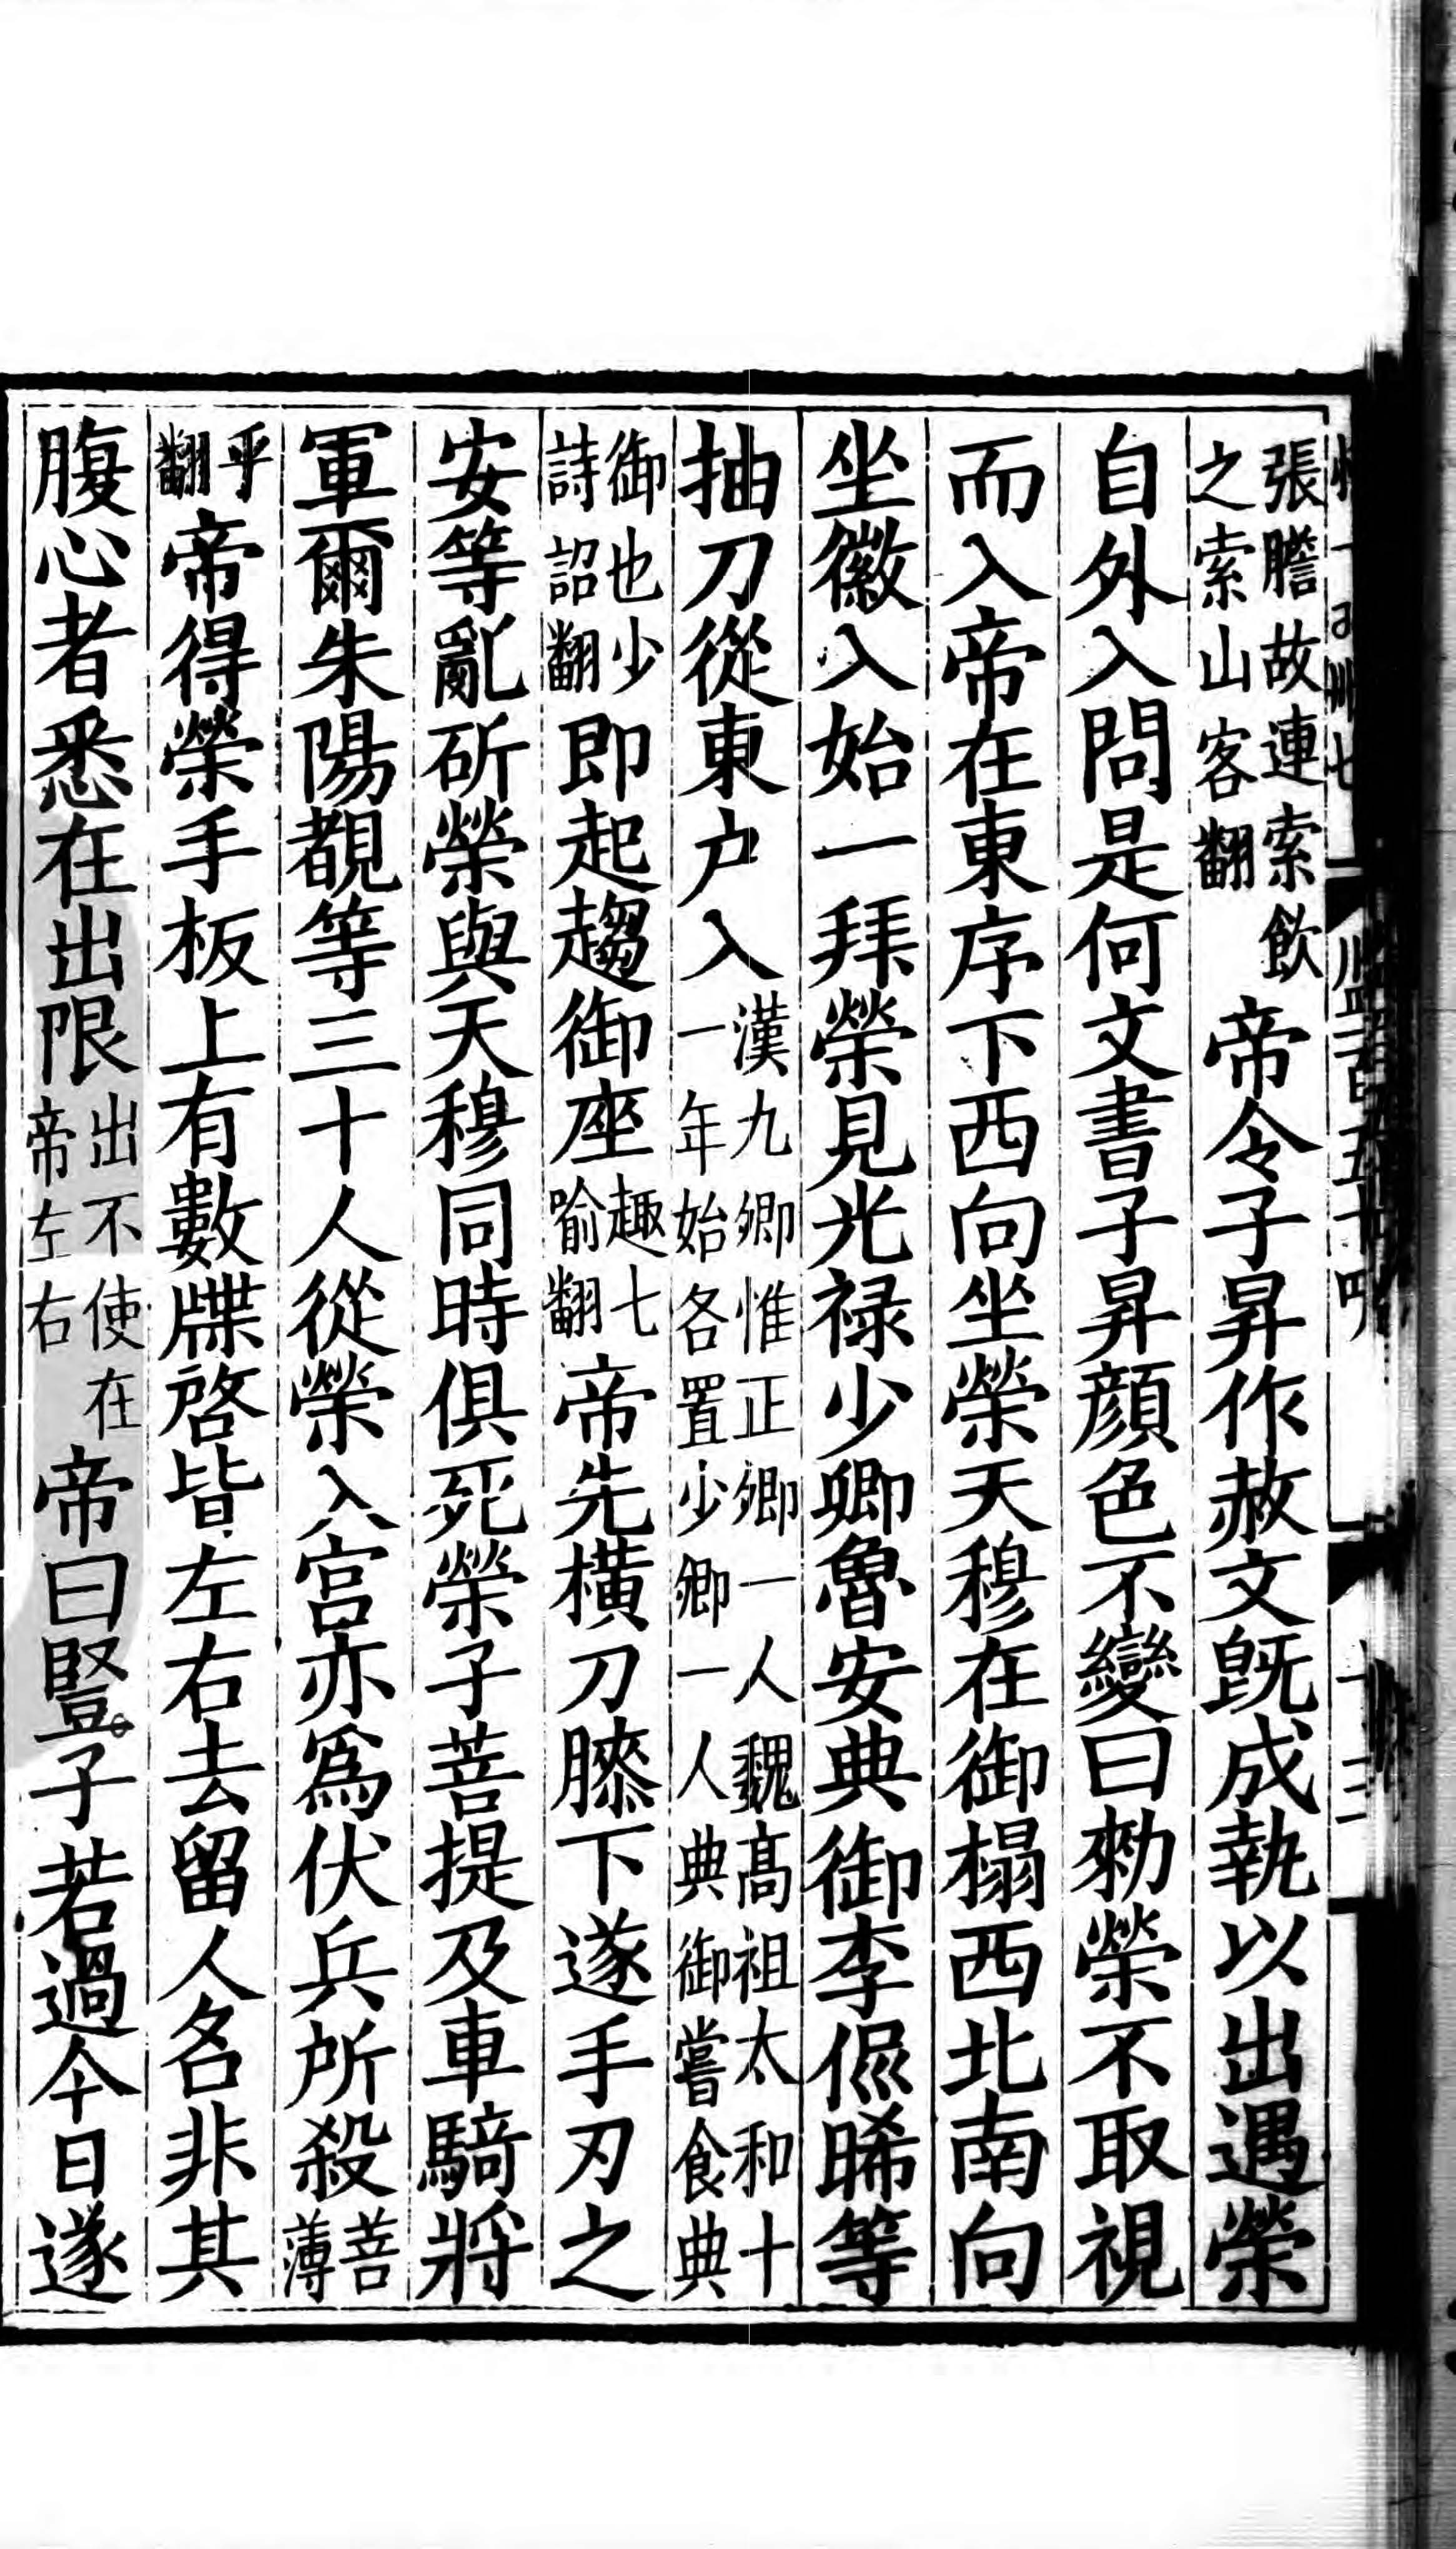 張膽故連索飲之索山客翻帝令子昇作赦文旣成執以出遇榮
自外入問是何文書子昇顔色不變曰勑榮不取視
而入帝在東序下西向坐榮天穆在御榻西北南向
坐徽入始一拜榮見光禄少卿魯安典御李侃晞等
抽刀從東户入漢九卿惟正卿一人魏高祖太和十一年始各置少卿一人典御嘗食典
御也少詩詔翻即起趨御座趣七喻翻帝先横刀膝下遂手刃之
安等亂斫榮與天穆同時俱死榮子菩提及車騎將
軍爾朱陽覩等三十人從榮入宫亦爲伏兵所殺菩薄
乎翻帝得榮手板上有數牒啓皆左右去留人名非其
腹心者悉在出限出不使在帝左右帝曰豎子若過今日遂